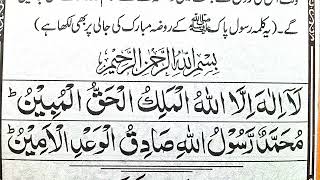 گے۔ (یہ کلمہ رسول پاک ﷺ کے روضہ مبارک کی جالی پر بھی لکھا ہے)
بِسْمِ اللّٰہِ الرَّحْمٰنِ الرَّحِیْمِ
لَآ اِلٰہَ اِلَّا اللّٰہُ الْمَلِکُ الْحَقُّ الْمُبِیْنُ ط
مُحَمَّدٌ رَّسُوْلُ اللّٰہِ صَادِقُ الْوَعْدِ الْاَمِیْنُ ط